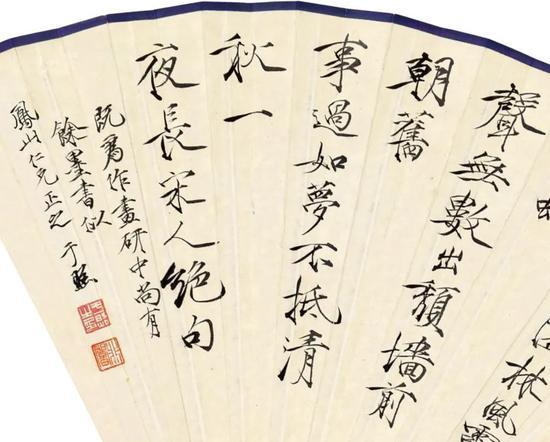 林風露
聲無數出頹墻前
朝舊
事過如夢不抵清
秋一
夜長宋人絕句
既為作畫研中尚有
餘墨書似
鳳山仁兄正之 于照